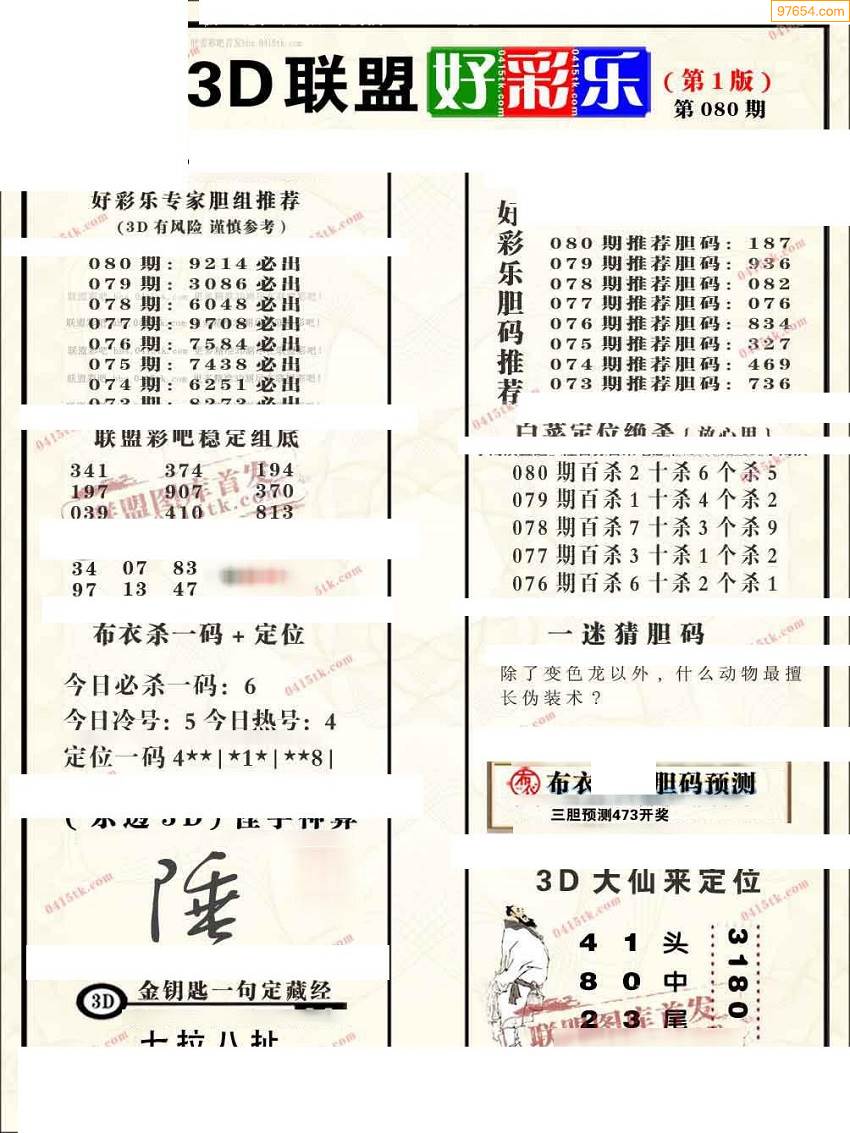 97654.com
3D联盟好彩乐
(第1版)
第080期
好彩乐专家胆组推荐
(3D有风险 谨慎参考)
080期: 9214必出
079期: 3086必出
078期: 6048必出
077期: 9708必出
076期: 7584必出
075期: 7438必出
074期: 6251必出
073期: 8273必出
联盟彩吧稳定组底
341 374 194
197 907 370
039 410 813
34 07 83
97 13 47
布衣杀一码+定位
今日必杀一码: 6
今日冷号: 5 今日热号: 4
定位一码4**|*1*|**8|
陲
3D 金钥匙一句定藏经
七拉八扯
好彩乐胆码推荐
080期推荐胆码: 187
079期推荐胆码: 936
078期推荐胆码: 082
077期推荐胆码: 076
076期推荐胆码: 834
075期推荐胆码: 327
074期推荐胆码: 469
073期推荐胆码: 736
白菜定位绝杀(放心用)
080期百杀2十杀6个杀5
079期百杀1十杀4个杀2
078期百杀7十杀3个杀9
077期百杀3十杀1个杀2
076期百杀6十杀2个杀1
一迷猜胆码
除了变色龙以外, 什么动物最擅
长伪装术?
布衣 胆码预测
三胆预测473开奖
3D大仙来定位
4 1 头
8 0 中
2 3 尾
3180
联盟图库首发
0415tk.com